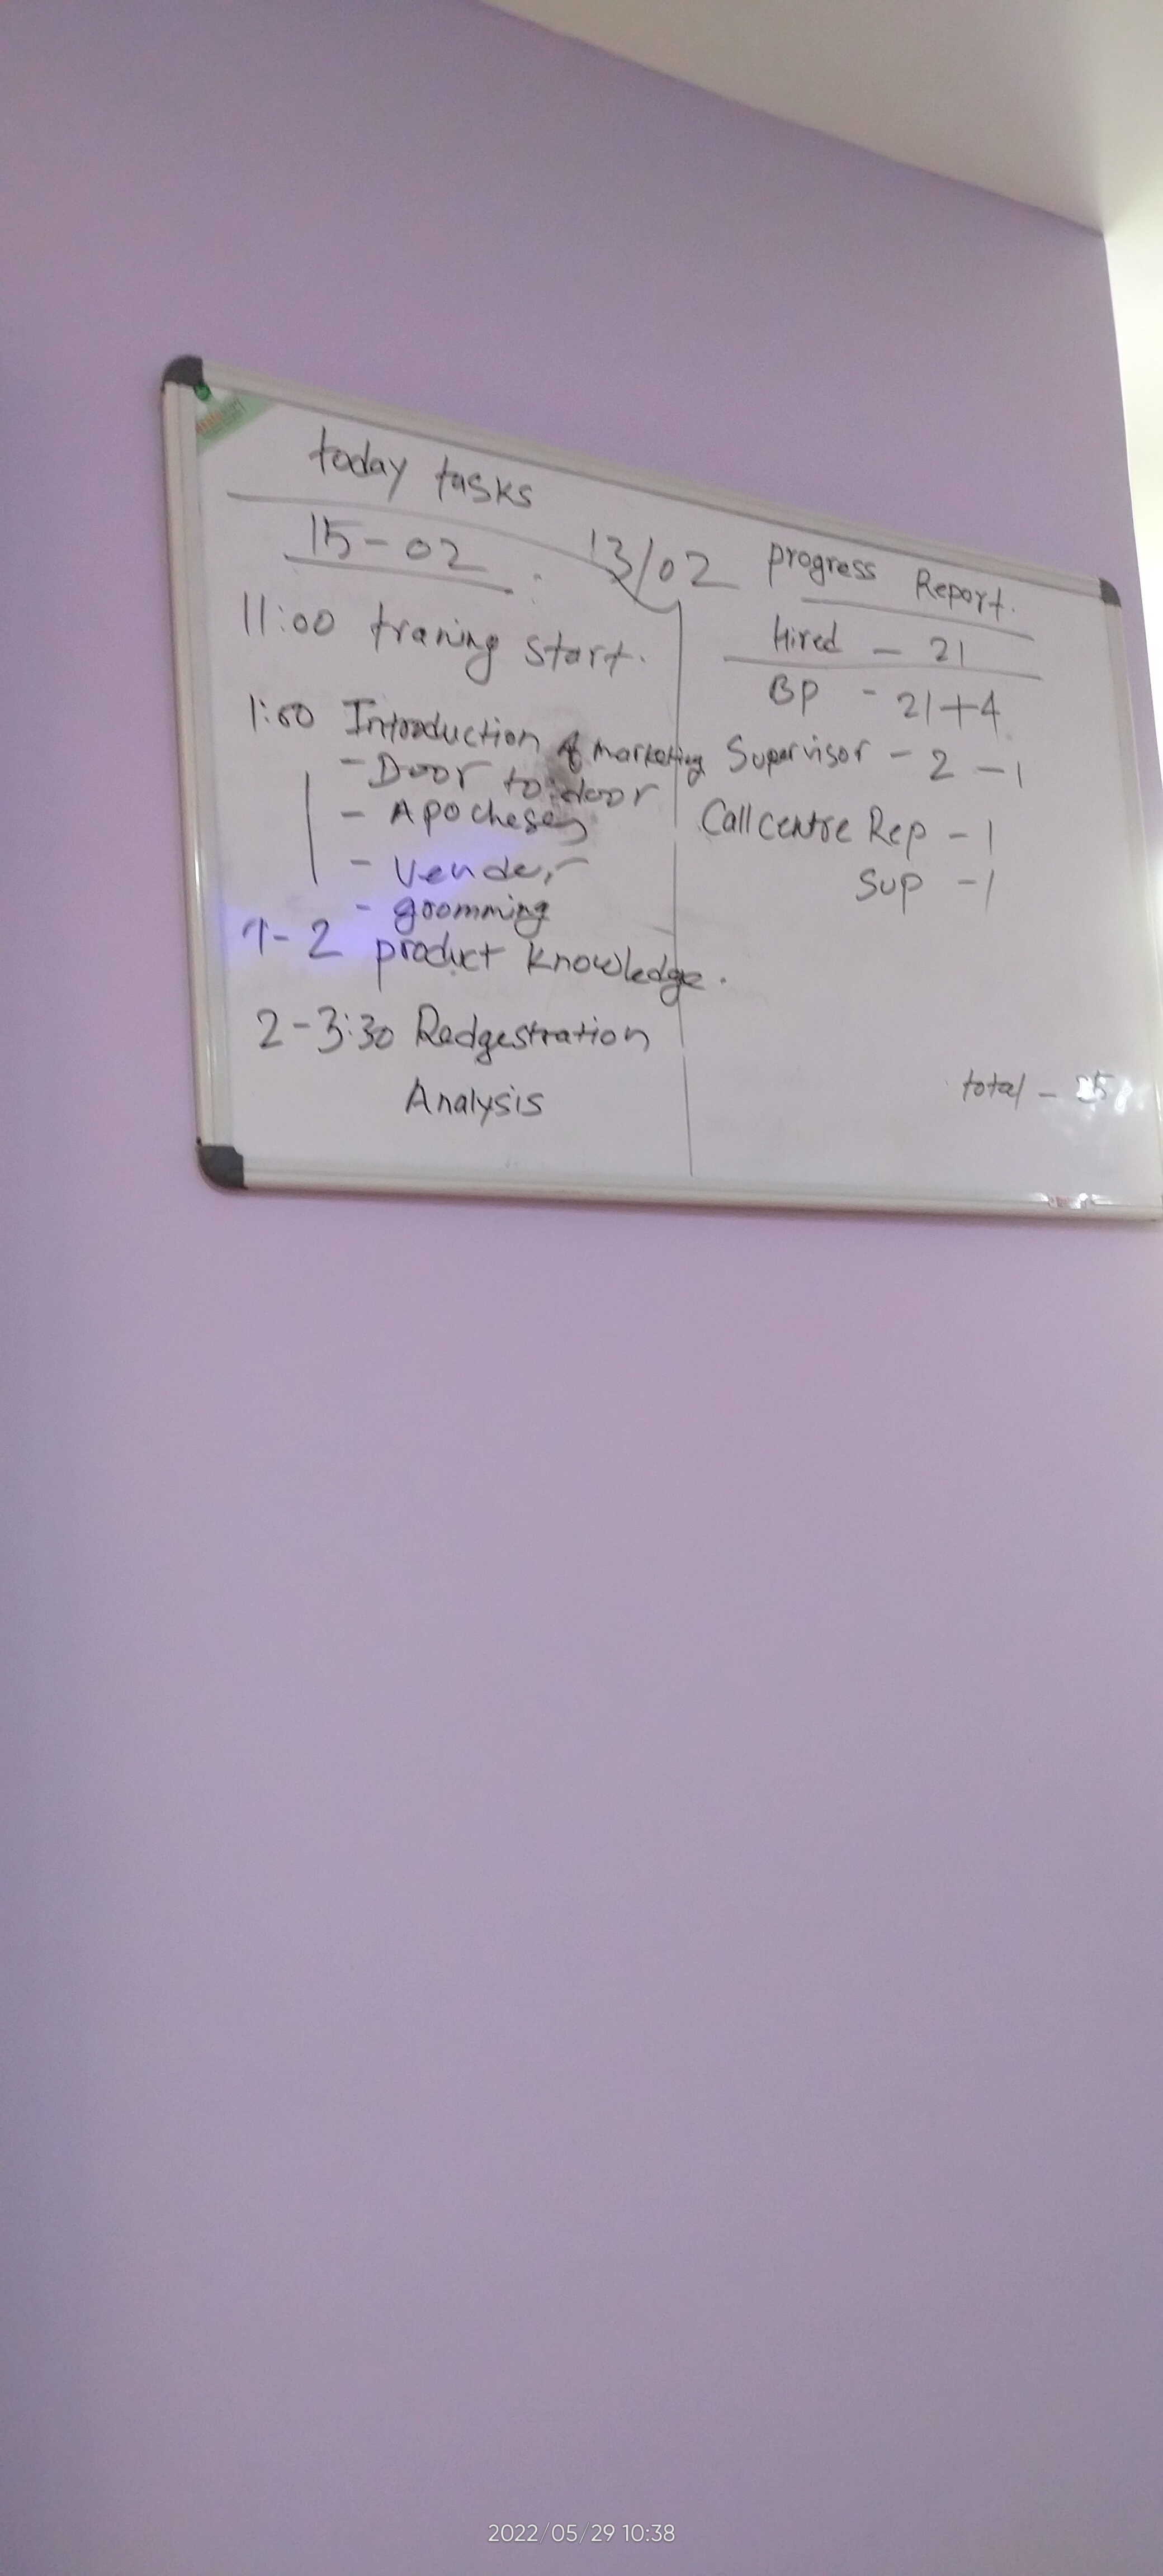 today tasks
15-02
11:00 traning start.
1:00 Introduction of marketing
- Door to door
- Apocheses
- Vender
- goomming
1-2 product knowledge.
2-3:30 Redgestration
Analysis
13/02 progress Report.
Hired - 21
BP - 21+4
Supervisor - 2 - 1
Callcentre Rep - 1
Sup - 1
total -
2022/05/29 10:38